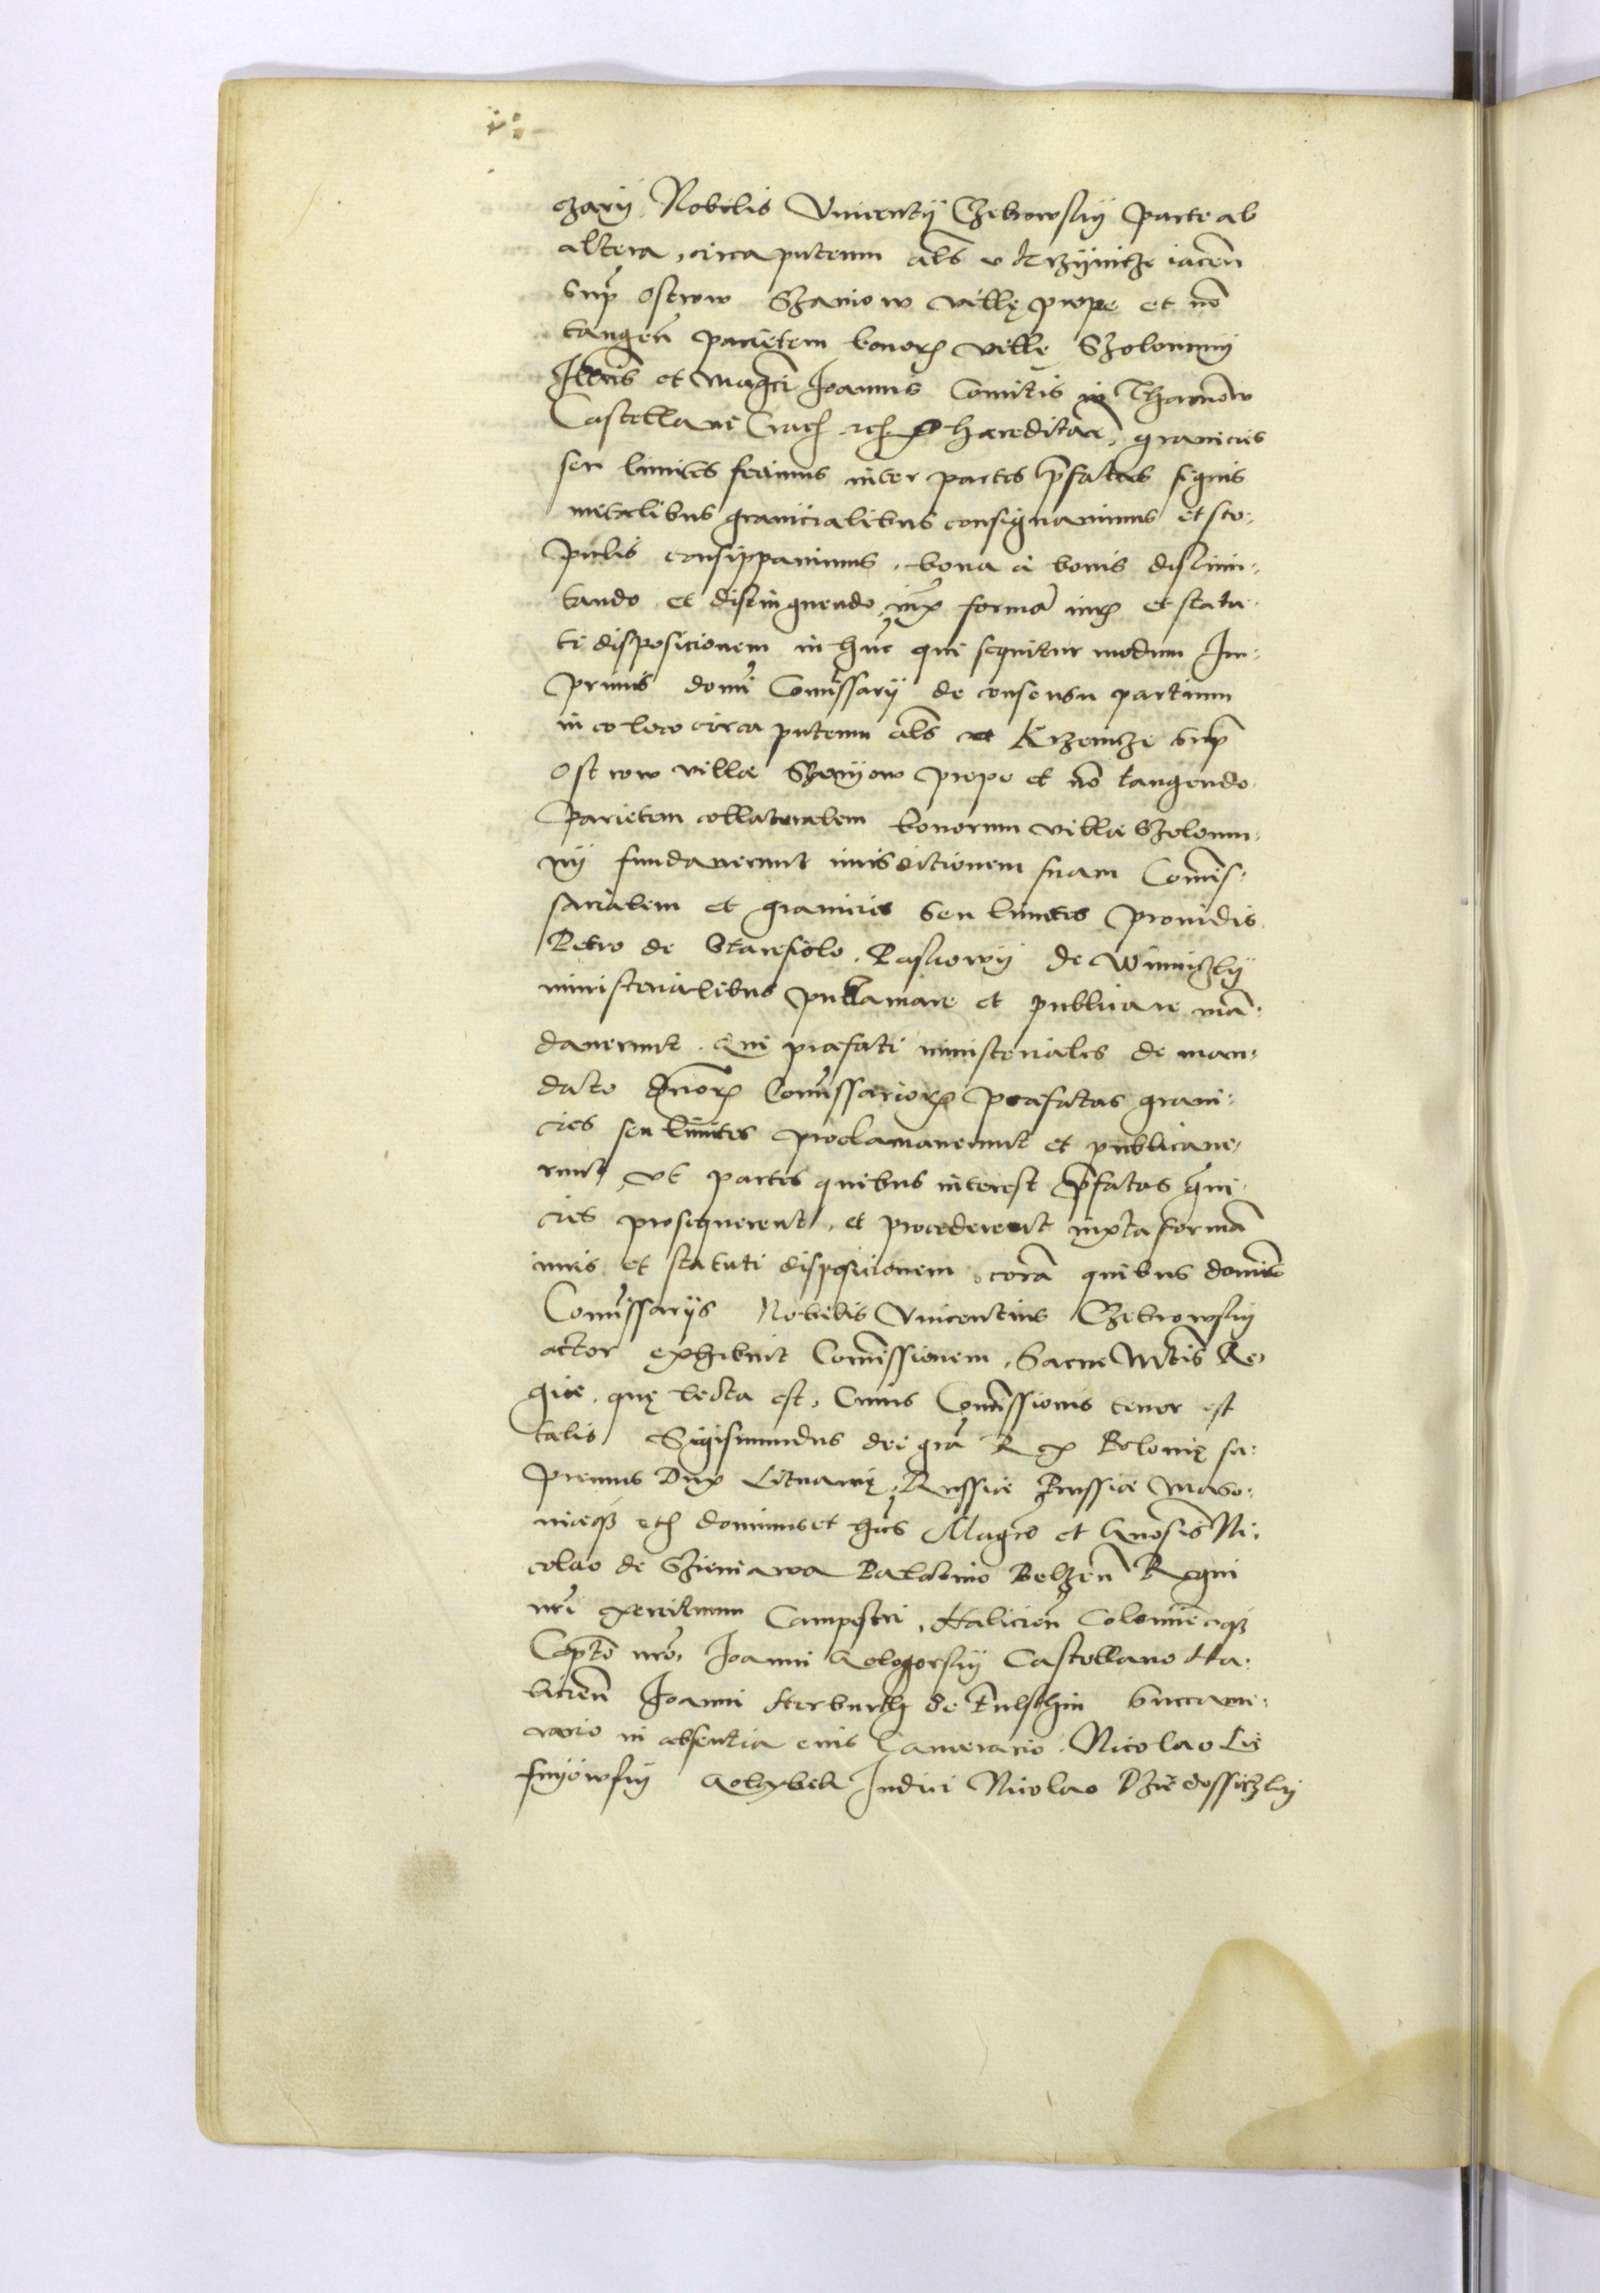 czary Nobilis Vincentij Czebrowsky parte ab
altera, circa puteum als v krzynicze iacen̄
supra Ostrow Szaniow villę prope et nō
tangen̄ parietem bonorꝝ villę Szolomiy
Illris et magci Joannis Comitis in Tharnow
Castellani Crac etc hæreditar̄, granicies
seu limites fecimus inter partes p̄fatas signis
metalibus granicialibus consignavimus et sco-
pulis consippavimus, bona à bonis dislimi-
tando et distinguendo iux̄ formā iurꝝ et statu-
ti dispositionem in hūc qui sequitur modum Im-
primis domī Comissarij de consensu partium
in eo loco circa puteum als v Krzenicze supra
Ostrow villæ Szaniow prope et nō tangendo
parietem collateralem bonorum villæ Szolom-
iy fundaverunt iurisdictionem suam Comis-
sarialem et granicies seu limites providis
Petro de Staresiolo, Paskowy de Winniczky
ministerialibus proclamare et publicare mā-
daverunt. Qui præfati ministeriales de man-
dato dn̄orꝝ Comissariorꝝ præfatas grani-
cies seu limites proclamaverunt et publicave-
runt, vt partes quibus interest p̄fatas grani-
cies prosequerent, et procederent iuxta formā
iuris et statuti dispositionem, corā quibus dominis
Comissarijs Nobilis Vincentius Czebrowsky
actor exhibuit Comissionem Sacræ Mtis Re-
giæ, quę lecta est, Cuius Comissionis tenor est
talis Sigismundus dei grā Rex Polonię su-
premus Dux Lituanię, Russiæ Prussiæ Maso-
uiæqȝ etc dominus et hæres Magco et Gnosis Ni-
colao de Szieniawa Palatino Belzen̄ Regni
nrī exercituum Campestri, Halicien̄ Colomieneqȝ
Captō nrō, Joanni Gologorsky Castellano Ha-
licien̄ Joanni Herburth de Fulsthin Succame-
rario in absentia eius Camerario, Nicolao
Judici Nicolao Dziedossiczky